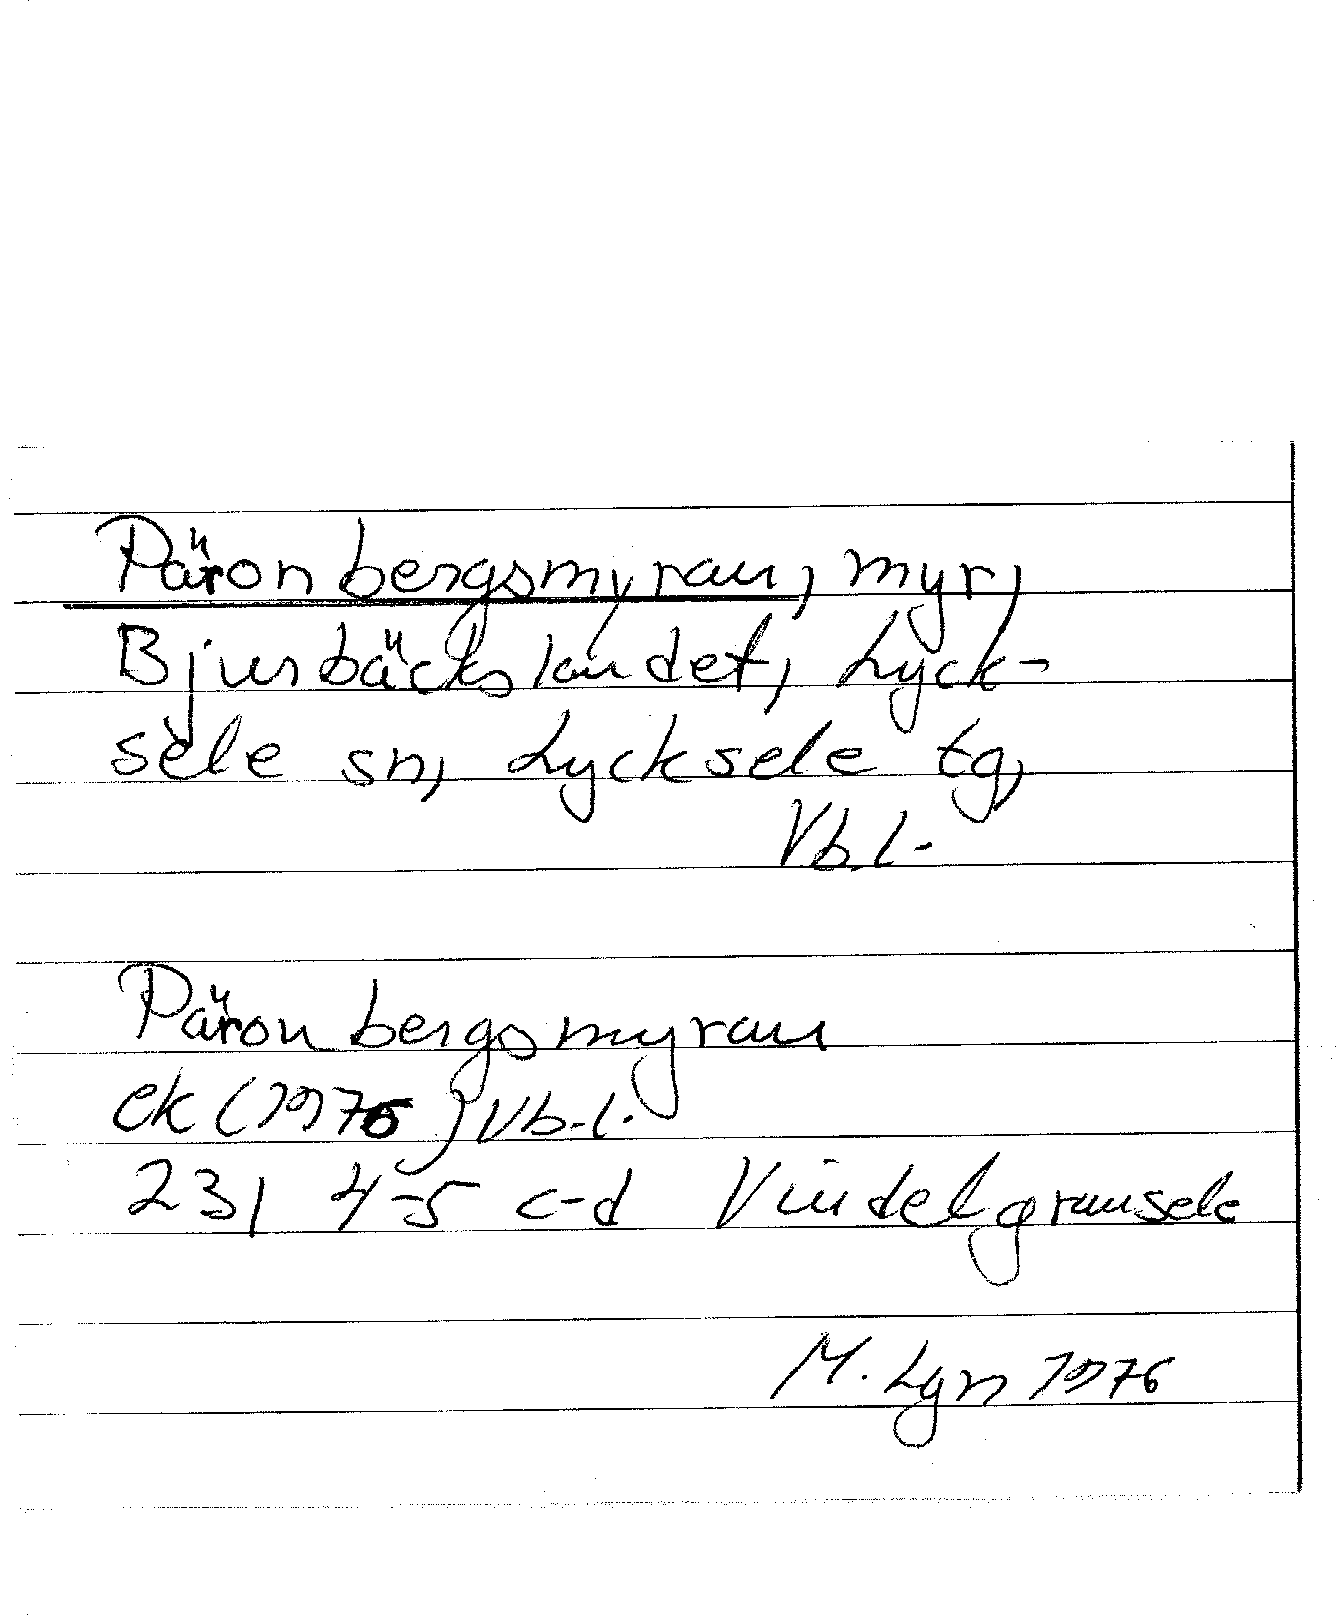 Päronbergsmyran, myr,
Bjurbäckslandet, Lyck-
sele sn, Lycksele tg,
Vb.l.
Päronbergsmyran
ek (1976) Vb.l.
23I 4-5 c-d Vindelgransele
M. Lgn 1976